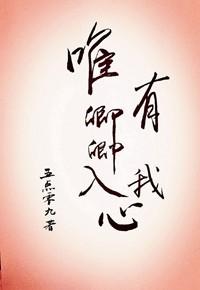 唯有
卿卿
入我心
五点零九 著